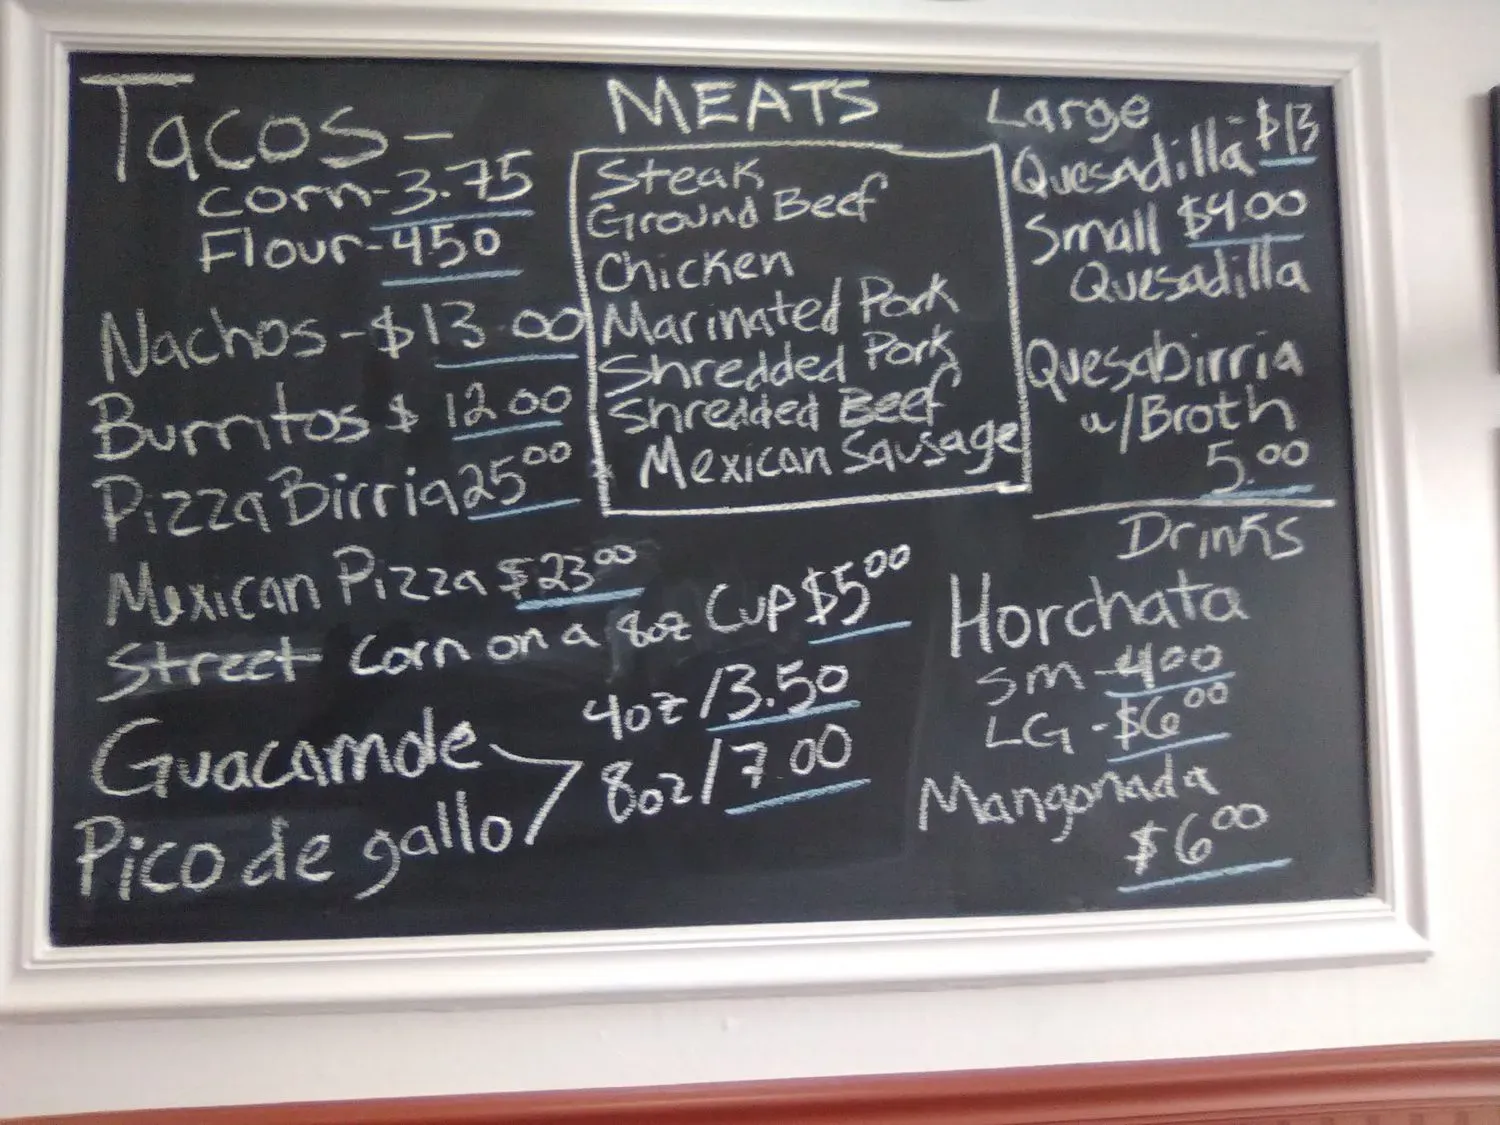 Tacos-
corn-3.75
Flour-450
Nachos-$13 00
Burritos $ 12.00
Pizza Birria 25 00
Mexican Pizza $23 00
Street Corn on a 8oz Cup $5 00
Guacamole
Pico de gallo
4oz/3.50
8oz/7.00
MEATS
Steak
Ground Beef
Chicken
Marinated Pork
Shredded Pork
Shredded Beef
Mexican Sausage
Large
Quesadilla-$13
Small $4.00
Quesadilla
Quesabirria
w/Broth
5.00
Drinks
Horchata
SM-400
LG-$6 00
Mangonada
$6 00